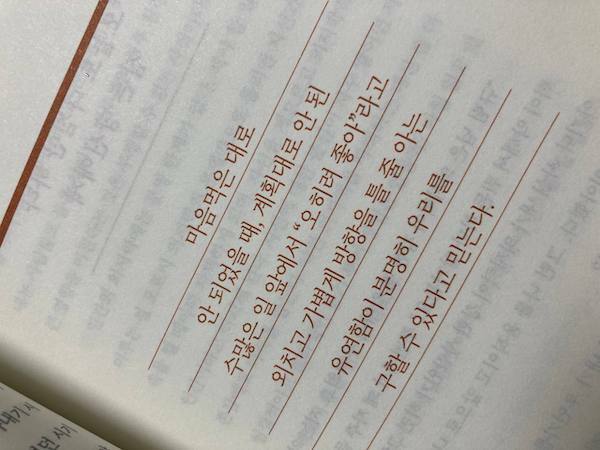 마음먹은 대로
안 되었을 때, 계획대로 안 된
수많은 일 앞에서 “오히려 좋아”라고
외치고 가볍게 방향을 틀 줄 아는
유연함이 분명히 우리를
구할 수 있다고 믿는다.